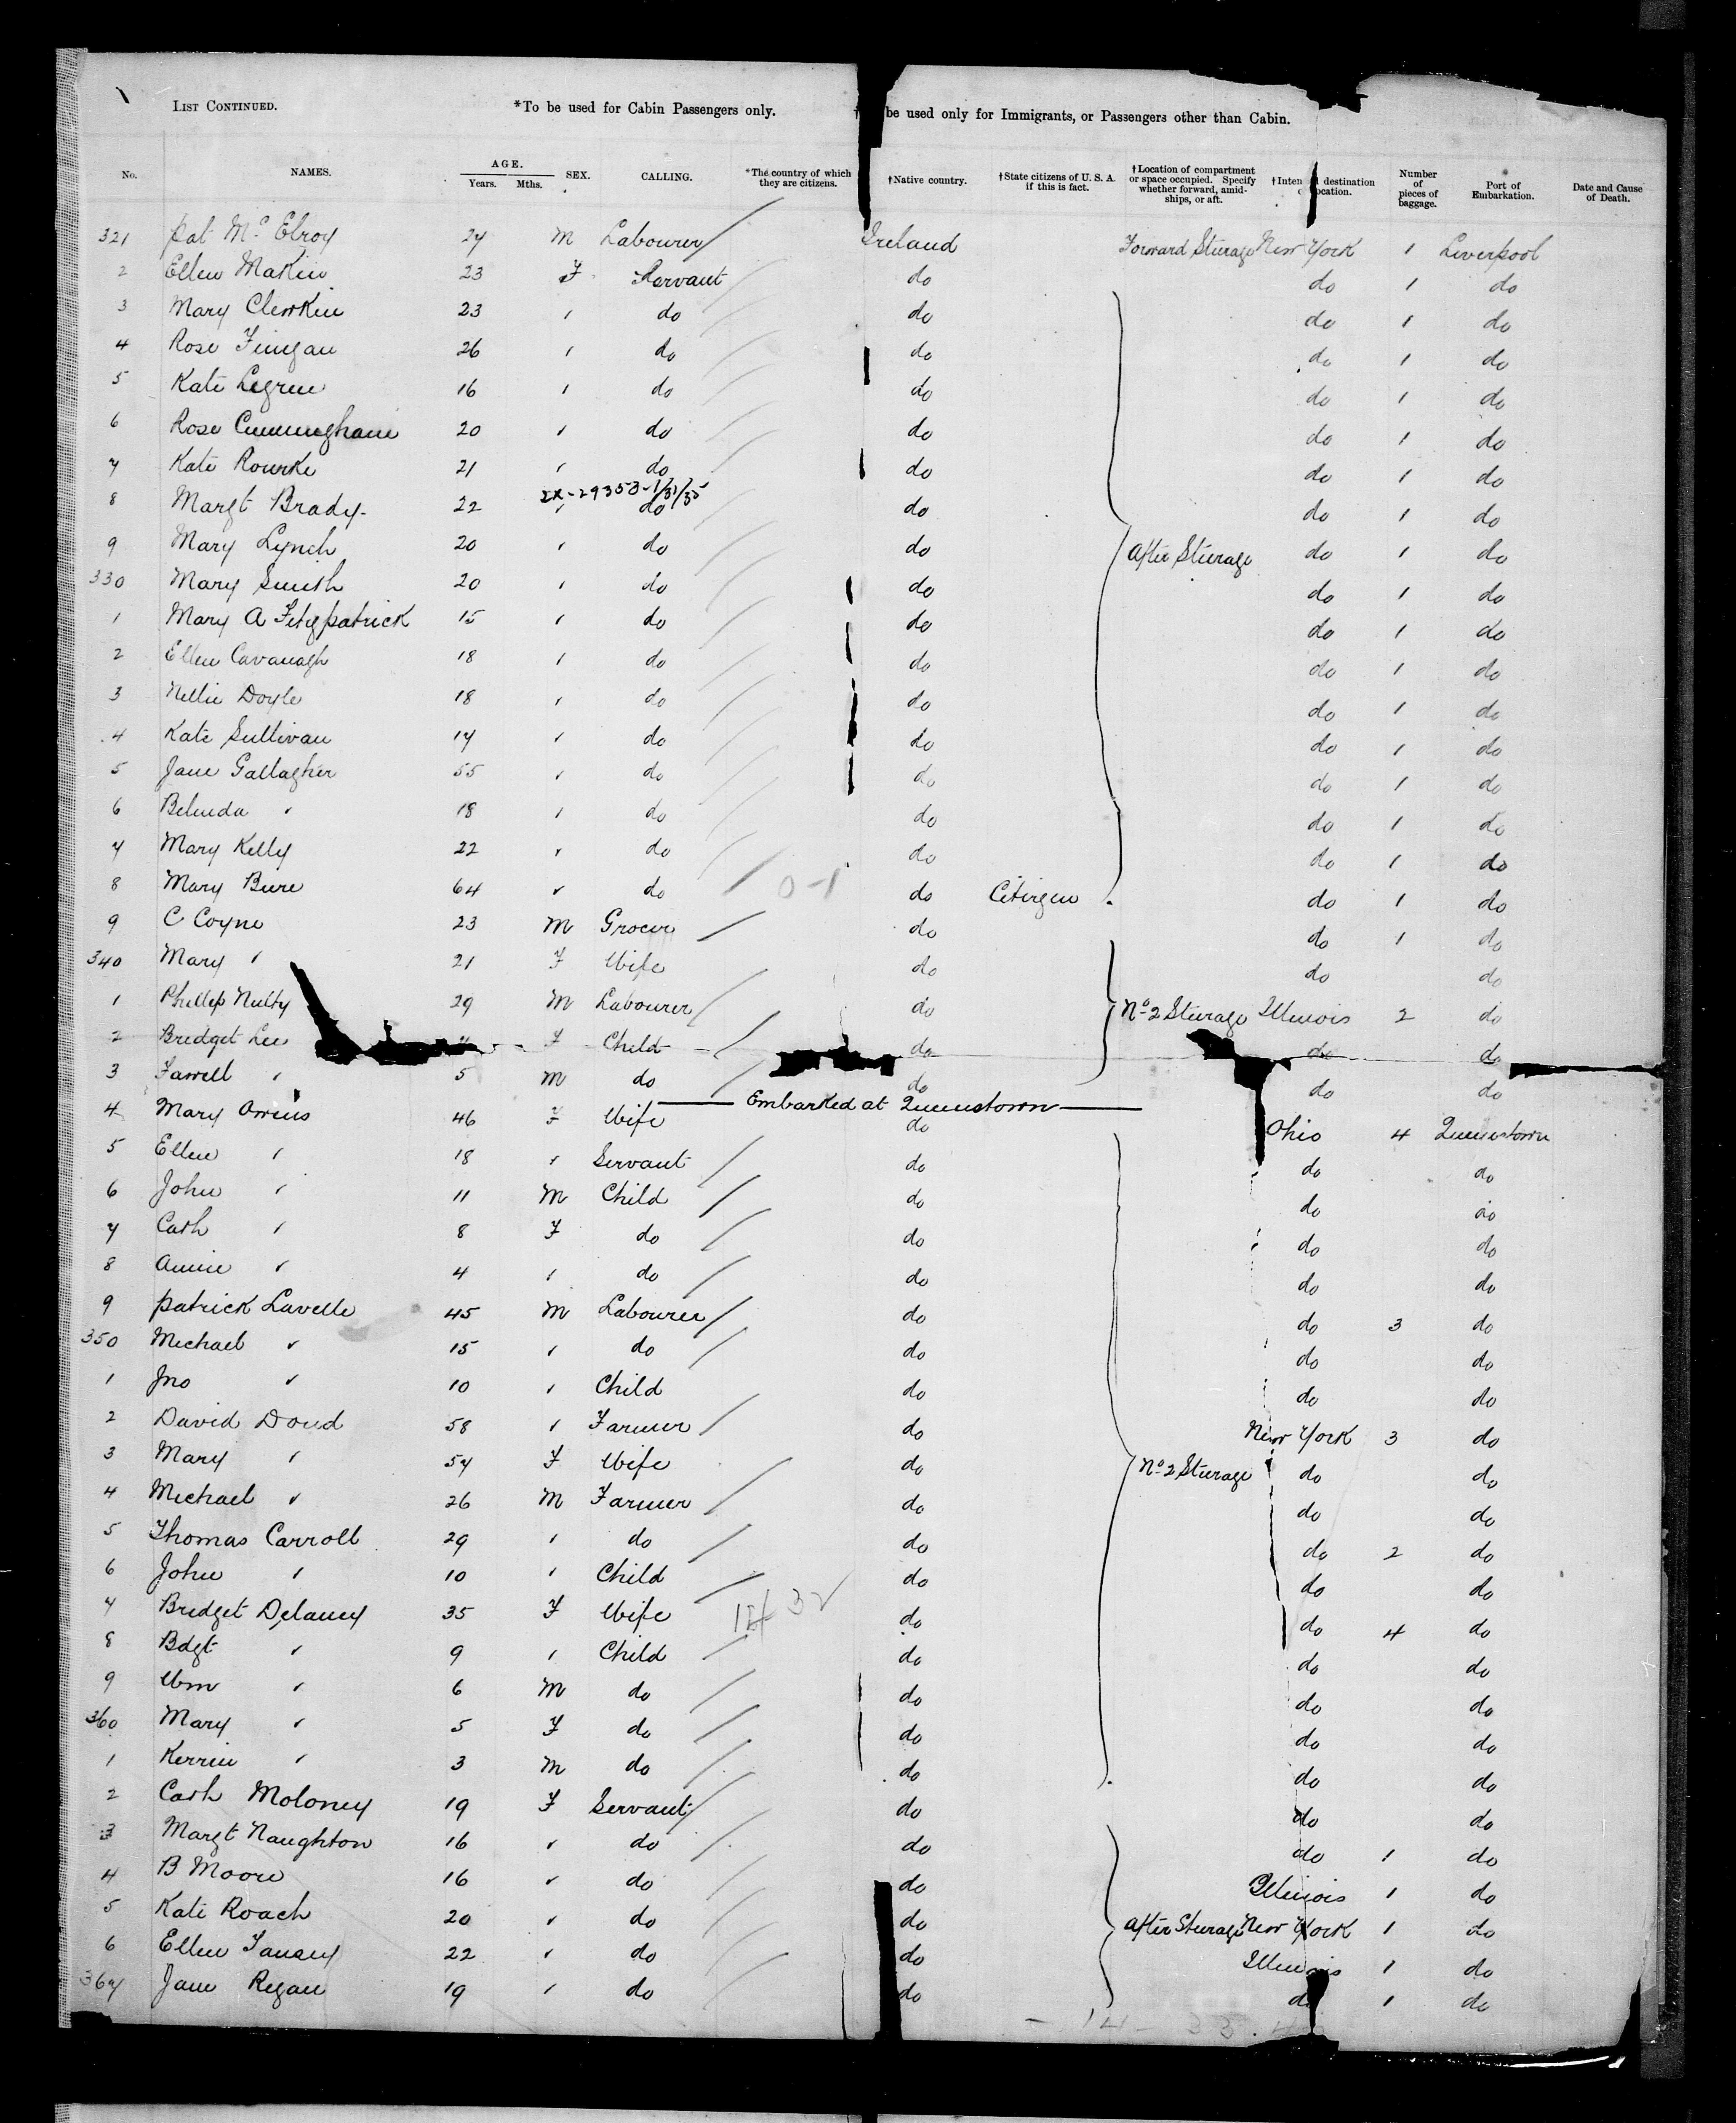 LIST CONTINUED. *To be used for Cabin Passengers only. † be used only for Immigrants, or Passengers other than Cabin.
No. NAMES. AGE. Years. Mths. SEX. CALLING. *The country of which they are citizens. †Native country. †State citizens of U. S. A. if this is fact. †Location of compartment or space occupied. Specify whether forward, amidships, or aft. †Inten destination location. Number of pieces of baggage. Port of Embarkation. Date and Cause of Death.
321 Pat McElroy 27 M Labourer Ireland Forward Sturage New York 1 Liverpool
2 Ellen Makin 23 F Servant do do 1 do
3 Mary Clerkin 23 " do do do 1 do
4 Rose Finigan 26 " do do do 1 do
5 Kate Legree 16 " do do do 1 do
6 Rose Cunningham 20 " do do do 1 do
7 Kate Rourke 21 " do do do 1 do
2X-29353-1/31/35
8 Margt Brady 22 " do do do 1 do
9 Mary Lynch 20 " do do After Sturage do 1 do
330 Mary Smith 20 " do do do 1 do
1 Mary A Fitzpatrick 15 " do do do 1 do
2 Ellen Cavanagh 18 " do do do 1 do
3 Nellie Doyle 18 " do do do 1 do
4 Kate Sullivan 17 " do do do 1 do
5 Jane Gallagher 55 " do do do 1 do
6 Belinda " 18 " do do do 1 do
7 Mary Kelly 22 " do do do 1 do
8 Mary 64 " do 0-1 do Citizen do 1 do
9 C Coyne 23 M Grocer do do 1 do
340 Mary " 21 F Wife do do do
1 Phillip Nulty 29 M Labourer do No 2 Sturage Illinois 2 do
2 Bridget Lee F Child do do do
3 Farrell " 5 M do do do do
Embarked at Queenstown
4 Mary Owens 46 F Wife do Ohio 4 Queenstown
5 Ellen " 18 " Servant do do do
6 John " 11 M Child do do do
7 Cath " 8 F do do do do
8 Annie " 4 " do do do do
9 Patrick Lavelle 45 M Labourer do do 3 do
350 Michael " 15 " do do do do
1 Jno " 10 " Child do do do
2 David Doud 58 " Farmer do New York 3 do
3 Mary " 57 F Wife do No 2 Sturage do do
4 Michael " 26 M Farmer do do do
5 Thomas Carroll 29 " do do do 2 do
6 John " 10 " Child do do do
7 Bridget Delaney 35 F Wife 32 do do 4 do
8 Bdgt " 9 " Child do do do
9 Wm " 6 M do do do do
360 Mary " 5 F do do do do
1 " 3 M do do do do
2 Cath Moloney 19 F Servant do do do
3 Margt Naughton 16 " do do do 1 do
4 B Moore 16 " do do Illinois 1 do
5 Kate Roach 20 " do do After Sturage New York 1 do
6 Ellen 22 " do do Illinois 1 do
367 Jane Regan 19 " do do do 1 do
- 14 - 33.